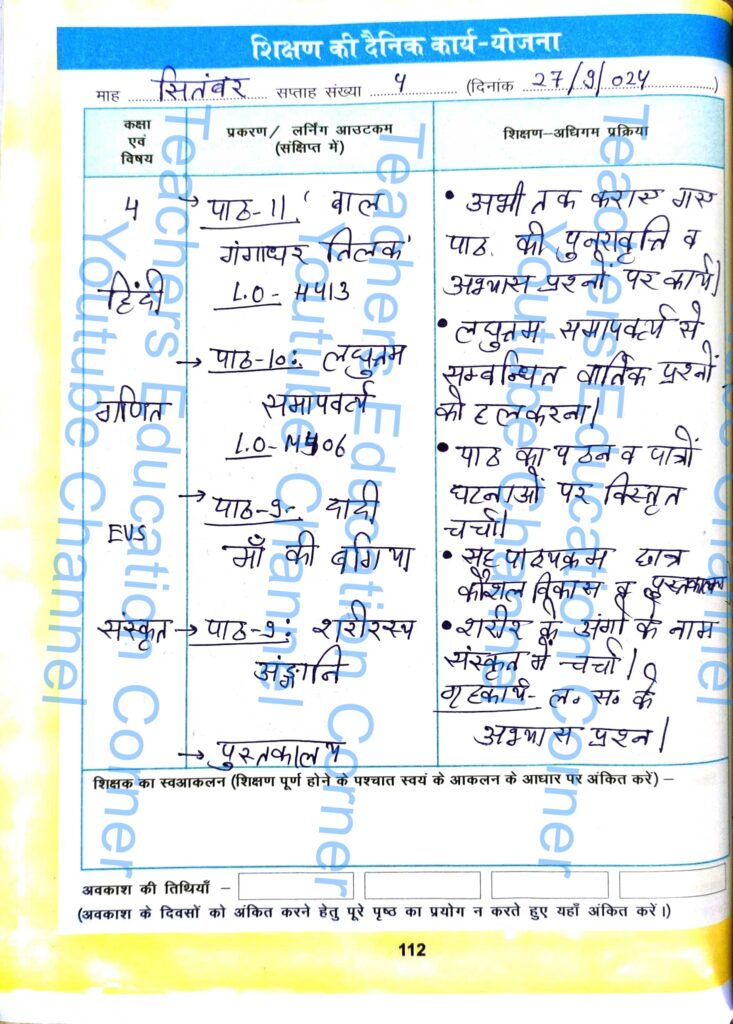 शिक्षण की दैनिक कार्य-योजना
माह सितंबर सप्ताह संख्या 4 (दिनांक 27/9/024)
कक्षा एवं विषय
प्रकरण/ लर्निंग आउटकम (संक्षिप्त में)
शिक्षण-अधिगम प्रक्रिया
4
हिंदी
→ पाठ-11 'बाल
गंगाधर तिलक'
L.O- H413
• अभी तक कराए गए
पाठ की पुनरावृत्ति व
अभ्यास प्रश्नों पर कार्य।
गणित
→ पाठ-10: लघुत्तम
समापवर्त्य
L.O- M406
• लघुत्तम समापवर्त्य से
सम्बन्धित वार्तिक प्रश्नों
को हल करना।
EVS
→ पाठ-9- दादी
माँ की बगिया
• पाठ का पठन व पात्रों
घटनाओं पर विस्तृत
चर्चा।
• सह पाठ्यक्रम छात्र
कौशल विकास व पुस्तकालय
संस्कृत
→ पाठ-9: शरीरस्य
अंङ्गानि
• शरीर के अंगो के नाम
संस्कृत में चर्चा।
गृहकार्य- ल. स. के
अभ्यास प्रश्न।
→ पुस्तकालय
शिक्षक का स्वआकलन (शिक्षण पूर्ण होने के पश्चात स्वयं के आकलन के आधार पर अंकित करें) –
अवकाश की तिथियाँ –
(अवकाश के दिवसों को अंकित करने हेतु पूरे पृष्ठ का प्रयोग न करते हुए यहाँ अंकित करें।)
112
Teachers Education Corner
Youtube Channel
Teachers Education Corner
Youtube Channel
Teachers Education Corner
Youtube Channel